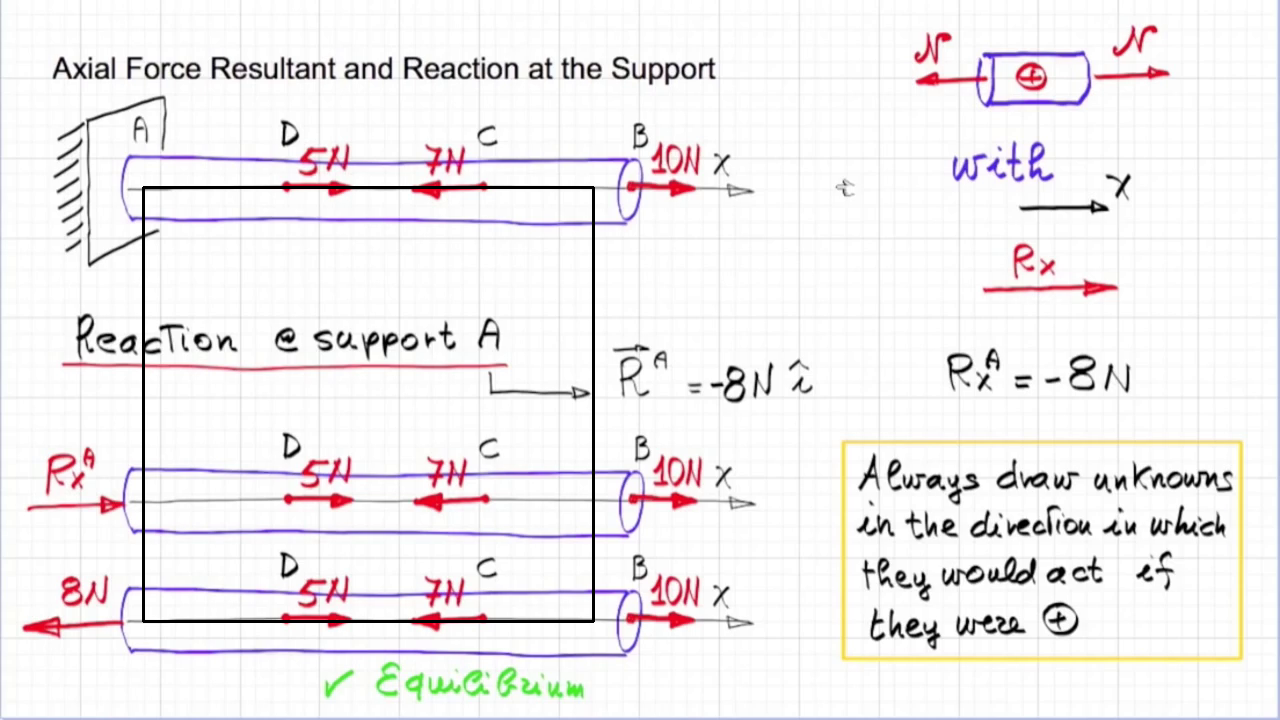 Axial Force Resultant and Reaction at the Support
N N
A D 5N 7N C B 10N x
with
x
Rx
Reaction @ support A
R^A = -8N î
Rx^A = -8N
Rx^A D 5N 7N C B 10N x
8N D 5N 7N C B 10N x
Always draw unknowns
in the direction in which
they would act if
they were ⊕
✓ Equilibrium